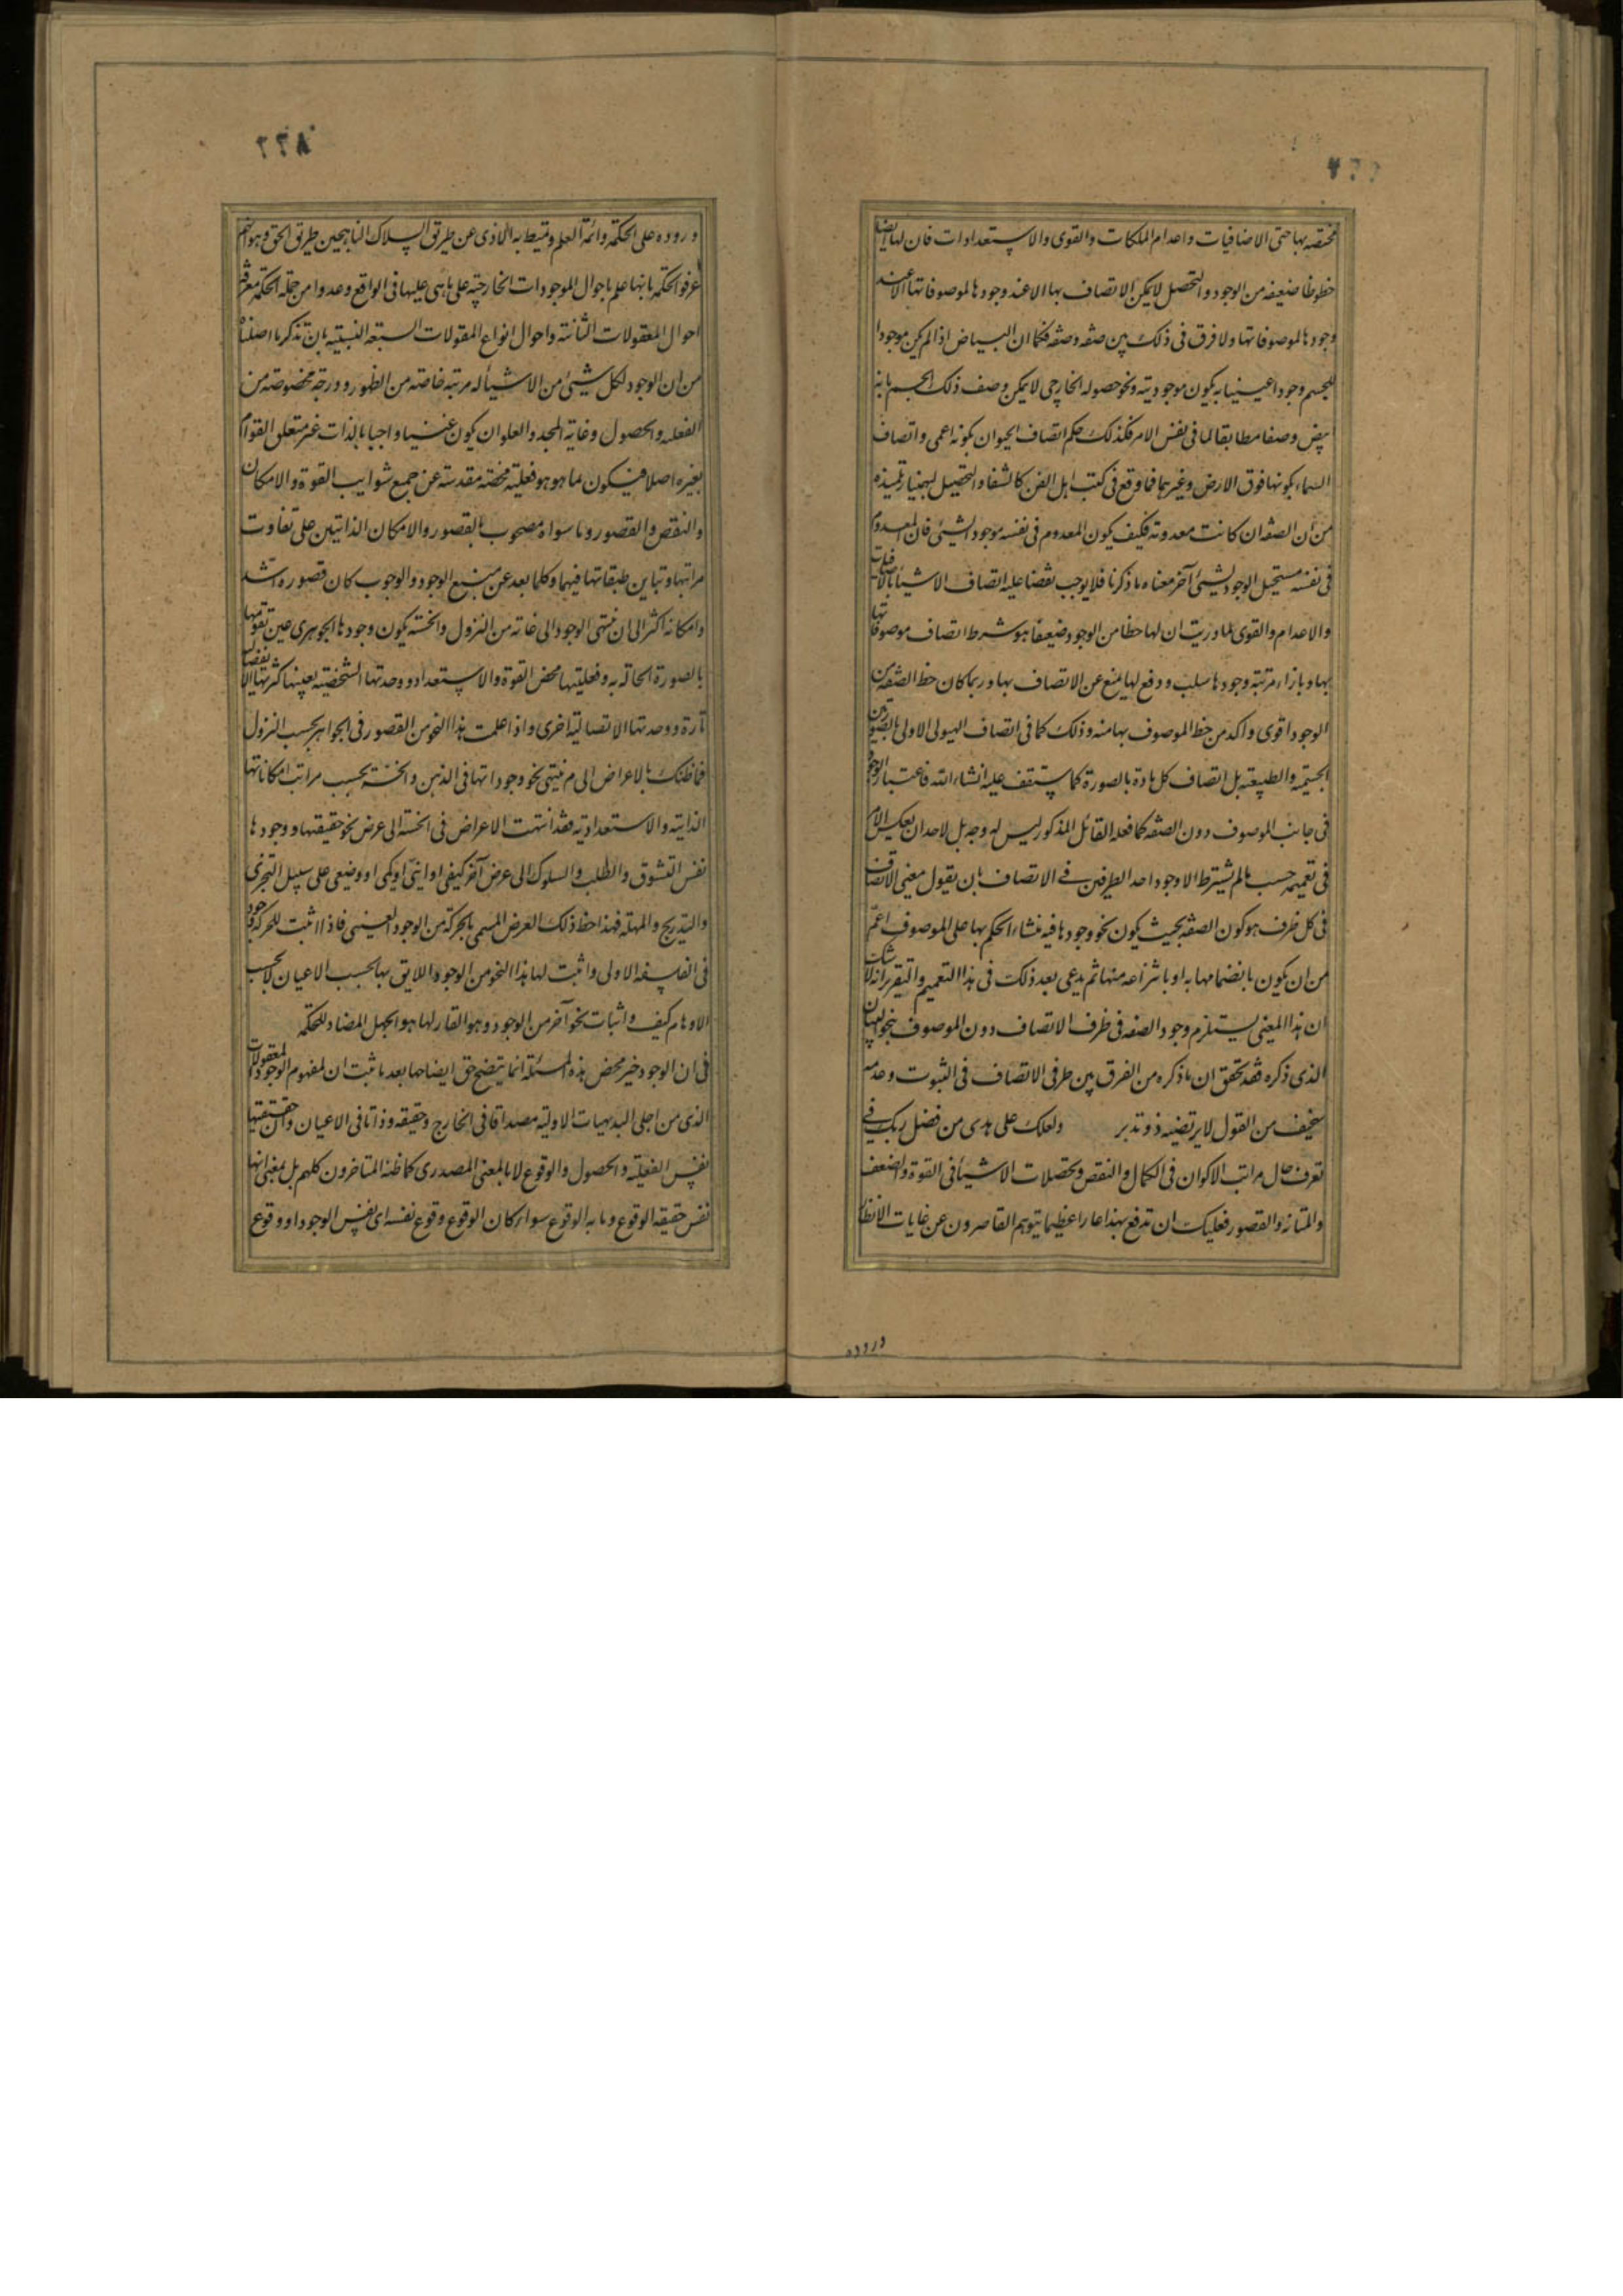 مختصة بها حتى الاضافيات واعدام الملكات والقوى والاستعدادات فان لها ايضا
حظوظا ضعيفه من الوجود والتحصل لايمكن الاتصاف بها الا عند وجودها لموصوفاتها الا عند
وجودها لموصوفاتها ولا فرق فى ذلك بين صفه وصفه فكما ان البياض اذا لم يكن موجودا
للجسم وجودا عينيا به يكون موجوديته ونحو حصوله الخارجى لايمكن وصف ذلك الجسم بانه
ابيض وصفا مطابقا لما فى نفس الامر فكذلك حكم اتصاف الحيوان بكونه اعمى واتصاف
السماء بكونها فوق الارض وغيرهما فما وقع فى كتب اهل الفن كالشفا والتحصيل لبهمنيار تلميذه
من ان الصفه ان كانت معدومة فكيف يكون المعدوم فى نفسه موجودا لشيئ فان المعدوم
فى نفسه مستحيل الوجود لشيئ آخر معناه ما ذكرنا فلا يوجب نقضا عليه اتصاف الاشياء بالاضافيات
والاعدام والقوى لما دريت ان لها حظا من الوجود ضعيفا هو شرط اتصاف موصوفاتها
بها وبازاء مرتبة وجودها سلب ودفع لها يمنع عن الاتصاف بها وربما كان حظ الصفة من
الوجود اقوى واكد من حظ الموصوف بها منه وذلك كما فى اتصاف الهيولى الاولى بالصورتين
الجسمية والطبيعة بل اتصاف كل مادة بالصورة كما ستقف عليه انشاءالله فاعتبار الوجود
فى جانب الموصوف دون الصفه كما فعله القائل المذكور ليس له وجه بل لاحد ان يعكس الامر
فى تعميمه حسب ما لم يشترط الا وجود احد الطرفين فى الاتصاف بان يقول معنى الاتصاف
فى كل ظرف هو كون الصفة بحيث يكون نحو وجودها فيه منشاء الحكم بها على الموصوف اعم
من ان يكون بانضمامها به او بانتزاعه منها ثم يدعى بعد ذلك فى هذا التعميم والتقرير انه لا شك
ان هذا المعنى يستلزم وجود الصفه فى ظرف الاتصاف دون الموصوف بنحو البيان
الذى ذكره فقد تحقق ان ما ذكره من الفرق بين طرفى الاتصاف فى الثبوت وعدمه
سخيف من القول لا يرتضيه ذو تدبر ولعلك على هدى من فضل ربك فى
تعرف حال مراتب الاكوان فى الكمال والنقص وتحصلات الاشياء فى القوة والضعف
والمتانة والقصور فعليك ان تدفع بهذا عارا عظيما يتوهم القاصرون عن غايات الانظار
وروده
٢٢٨
وروده على الحكمة وائمة العلم وتميط به الاذى عن طريق السلاك الناهجين طريق الحق وهو انهم
عرفوا الحكمة بانها علم باحوال الموجودات الخارجية على ما هى عليها فى الواقع وعدوا من جملة الحكمة معرفة
احوال المعقولات الثانية واحوال انواع المقولات السبعة النسبية بان تذكر ما اصلناه
من ان الوجود لكل شيئ من الاشياء له مرتبة خاصة من الظهور ودرجة مخصوصة من
الفعلية والحصول وغاية المجد والعلو ان يكون غنيا واجبا بالذات غير متعلق القوام
بغيره اصلا فيكون بما هو هو فعلية محضة مقدسة عن جميع شوايب القوة والامكان
والنقص والقصور وما سواه مصحوب بالقصور والامكان الذاتيين على تفاوت
مراتبها وتباين طبقاتها فيهما وكلما بعد عن منبع الوجود والوجوب كان قصوره اشد
وامكانه اكثر الى ان ينتهى الوجود الى غاية من النزول والخسة يكون وجودها الجوهرى عين تقومها
بالصورة الحالة به وفعليتها محض القوة والاستعداد ووحدتها الشخصية بعينها كثرتها الانفصالية
تارة ووحدتها الاتصالية اخرى واذا علمت هذا النحو من القصور فى الجواهر بحسب النزول
فما ظنك بالاعراض الى م ينتهى نحو وجوداتها فى الذهن والخسة بحسب مراتب امكاناتها
الذاتية والاستعدادية فقد انتهت الاعراض فى الخسة الى عرض نحو حقيقتها ووجودها
نفس التشوق والطلب والسلوك الى عرض آخر كيفى او اينى او كمى او وضعى على سبيل التجزى
والتدريج والمهلة فهذا حظ ذلك العرض المسمى بالحركة من الوجود العينى فاذا اثبت للحركة وجود
فى الفلسفه الاولى واثبت لها هذا النحو من الوجود اللايق بها بحسب الاعيان لا بحسب
الاوهام كيف واثبات نحو آخر من الوجود وهو القار لها هو الجهل المضاد للحكمة
فى ان الوجود خير محض هذه المسئلة انما يتضح حق ايضاحها بعد ما ثبت ان لمفهوم الوجود المعقول
الذى من اجلى البديهيات الاولية مصداقا فى الخارج وحقيقة وذاتا فى الاعيان وان حقيقتها
نفس الفعلية والحصول والوقوع لا بالمعنى المصدرى كما ظنه المتاخرون كلهم بل بمعنى انها
نفس حقيقة الوقوع وما به الوقوع سواء كان الوقوع وقوع نفسه اى نفس الوجود او وقوع